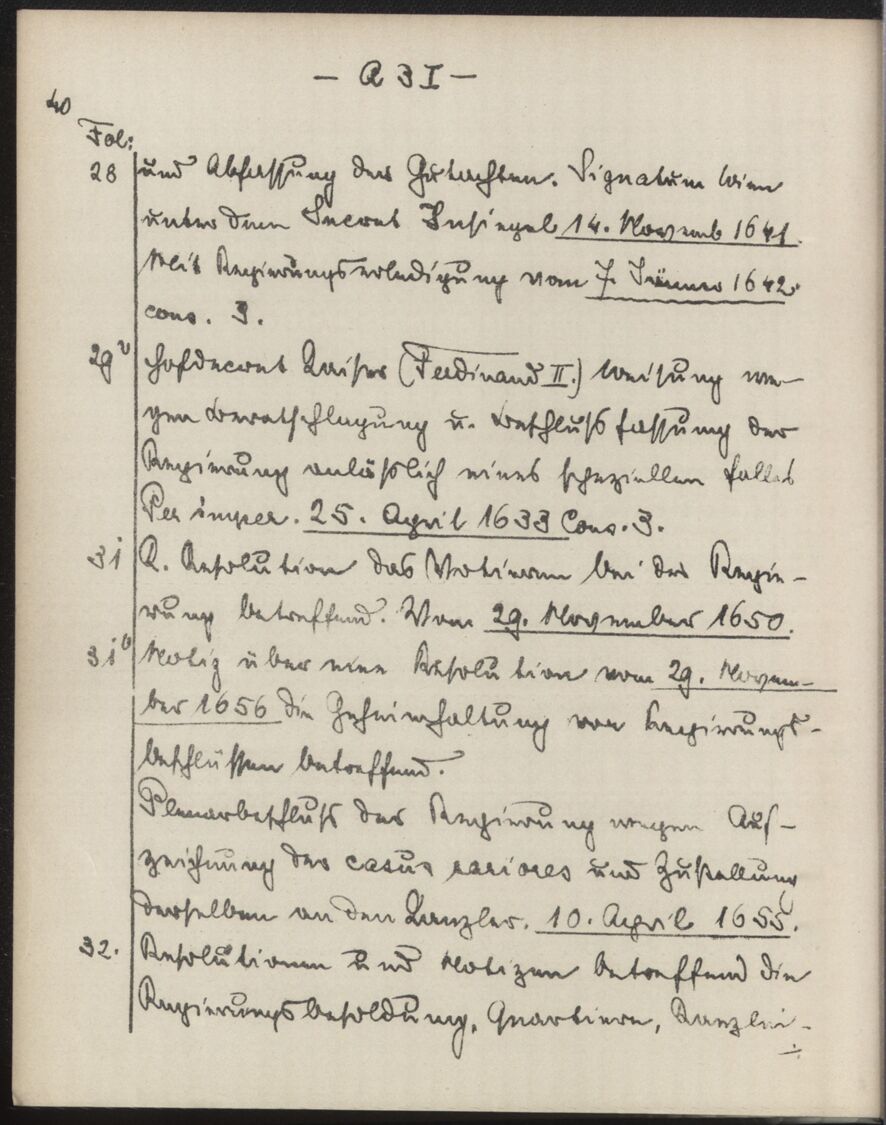 – A 3 I –
40
Fol:
28 und Abfassung der Gutachten. Signatum Wien
unter dem Secret Insiegel 14. Novemb 1641.
Mit Regierungserledigung vom 7. Jänner 1642.
cons. 3.
29v Hofdecret Kaiser (Ferdinand II.) Weisung we-
gen Beratschlagung u. Beschlußfassung der
Regierung anläßlich eines speziellen Falles
Per imper. 25. April 1633 Cons. 3.
31 K. Resolution das Votieren bei der Regie-
rung betreffend. Vom 29. November 1650.
31v Notiz über eine Resolution vom 29. Novem-
ber 1656 die Geheimhaltung von Regierungs-
beschlüssen betreffend.
Plenarbeschluß der Regierung wegen Auf-
zeichnung der casus rariores und Zustellung
derselben an den Kanzler. 10. April 1655.
32. Resolutionen und Notizen betreffend die
Regierungsbesoldung, Quartiere, Kanzlei-